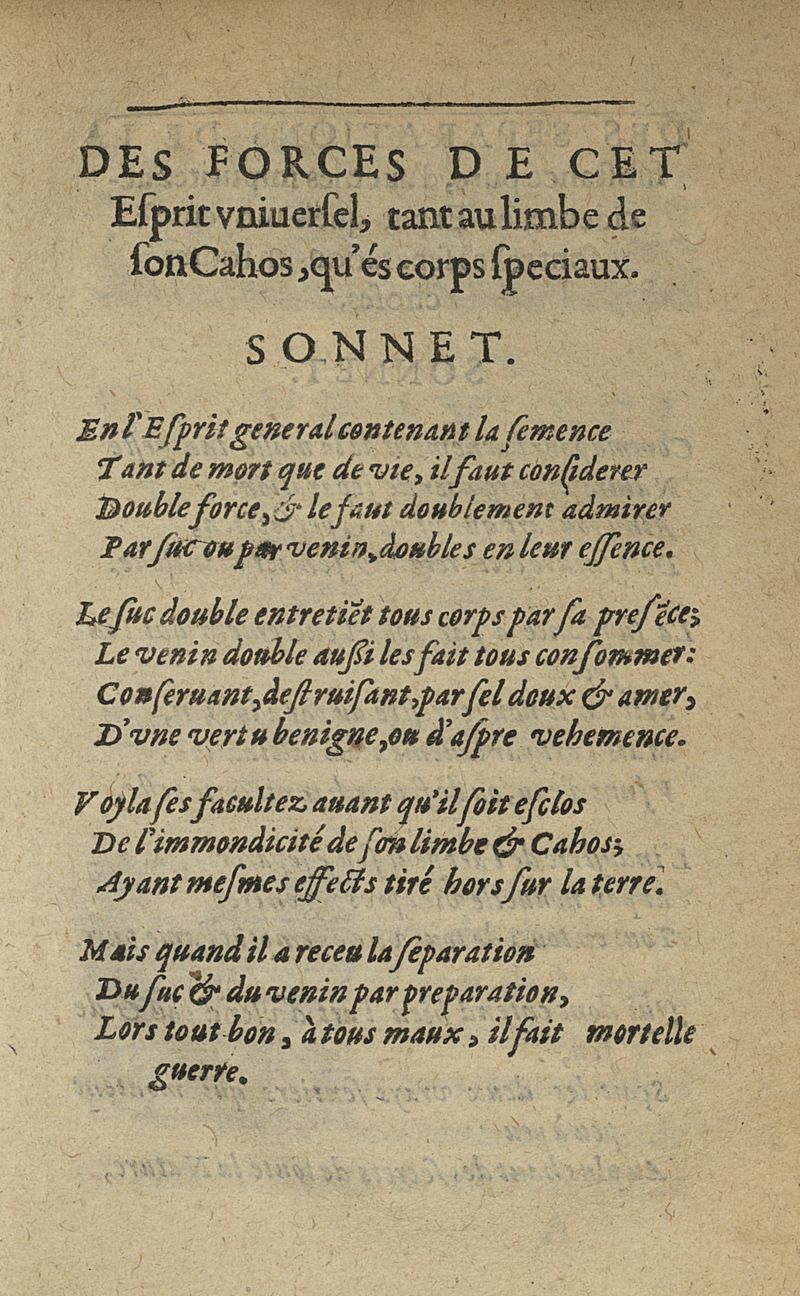 DES FORCES DE CET
Eſprit vniuerſel, tant au limbe de
ſon Cahos, qu'és corps ſpeciaux.
SONNET.
En l'Eſprit general contenant la ſemence
Tant de mort que de vie, il faut conſiderer
Double force, & le faut doublement admirer
Par ſuc ou par venin, doubles en leur eſſence.
Le ſuc double entretiẽt tous corps par ſa preſẽce;
Le venin double auſſi les fait tous conſommer:
Conſeruant, deſtruiſant, par ſel doux & amer,
D'vne vertu benigne, ou d'aſpre vehemence.
Voyla ſes facultez auant qu'il ſoit eſclos
De l'immondicité de ſon limbe & Cahos;
Ayant meſmes effects tiré hors ſur la terre.
Mais quand il a receu la ſeparation
Du ſuc & du venin par preparation,
Lors tout bon, à tous maux, il fait mortelle
guerre.